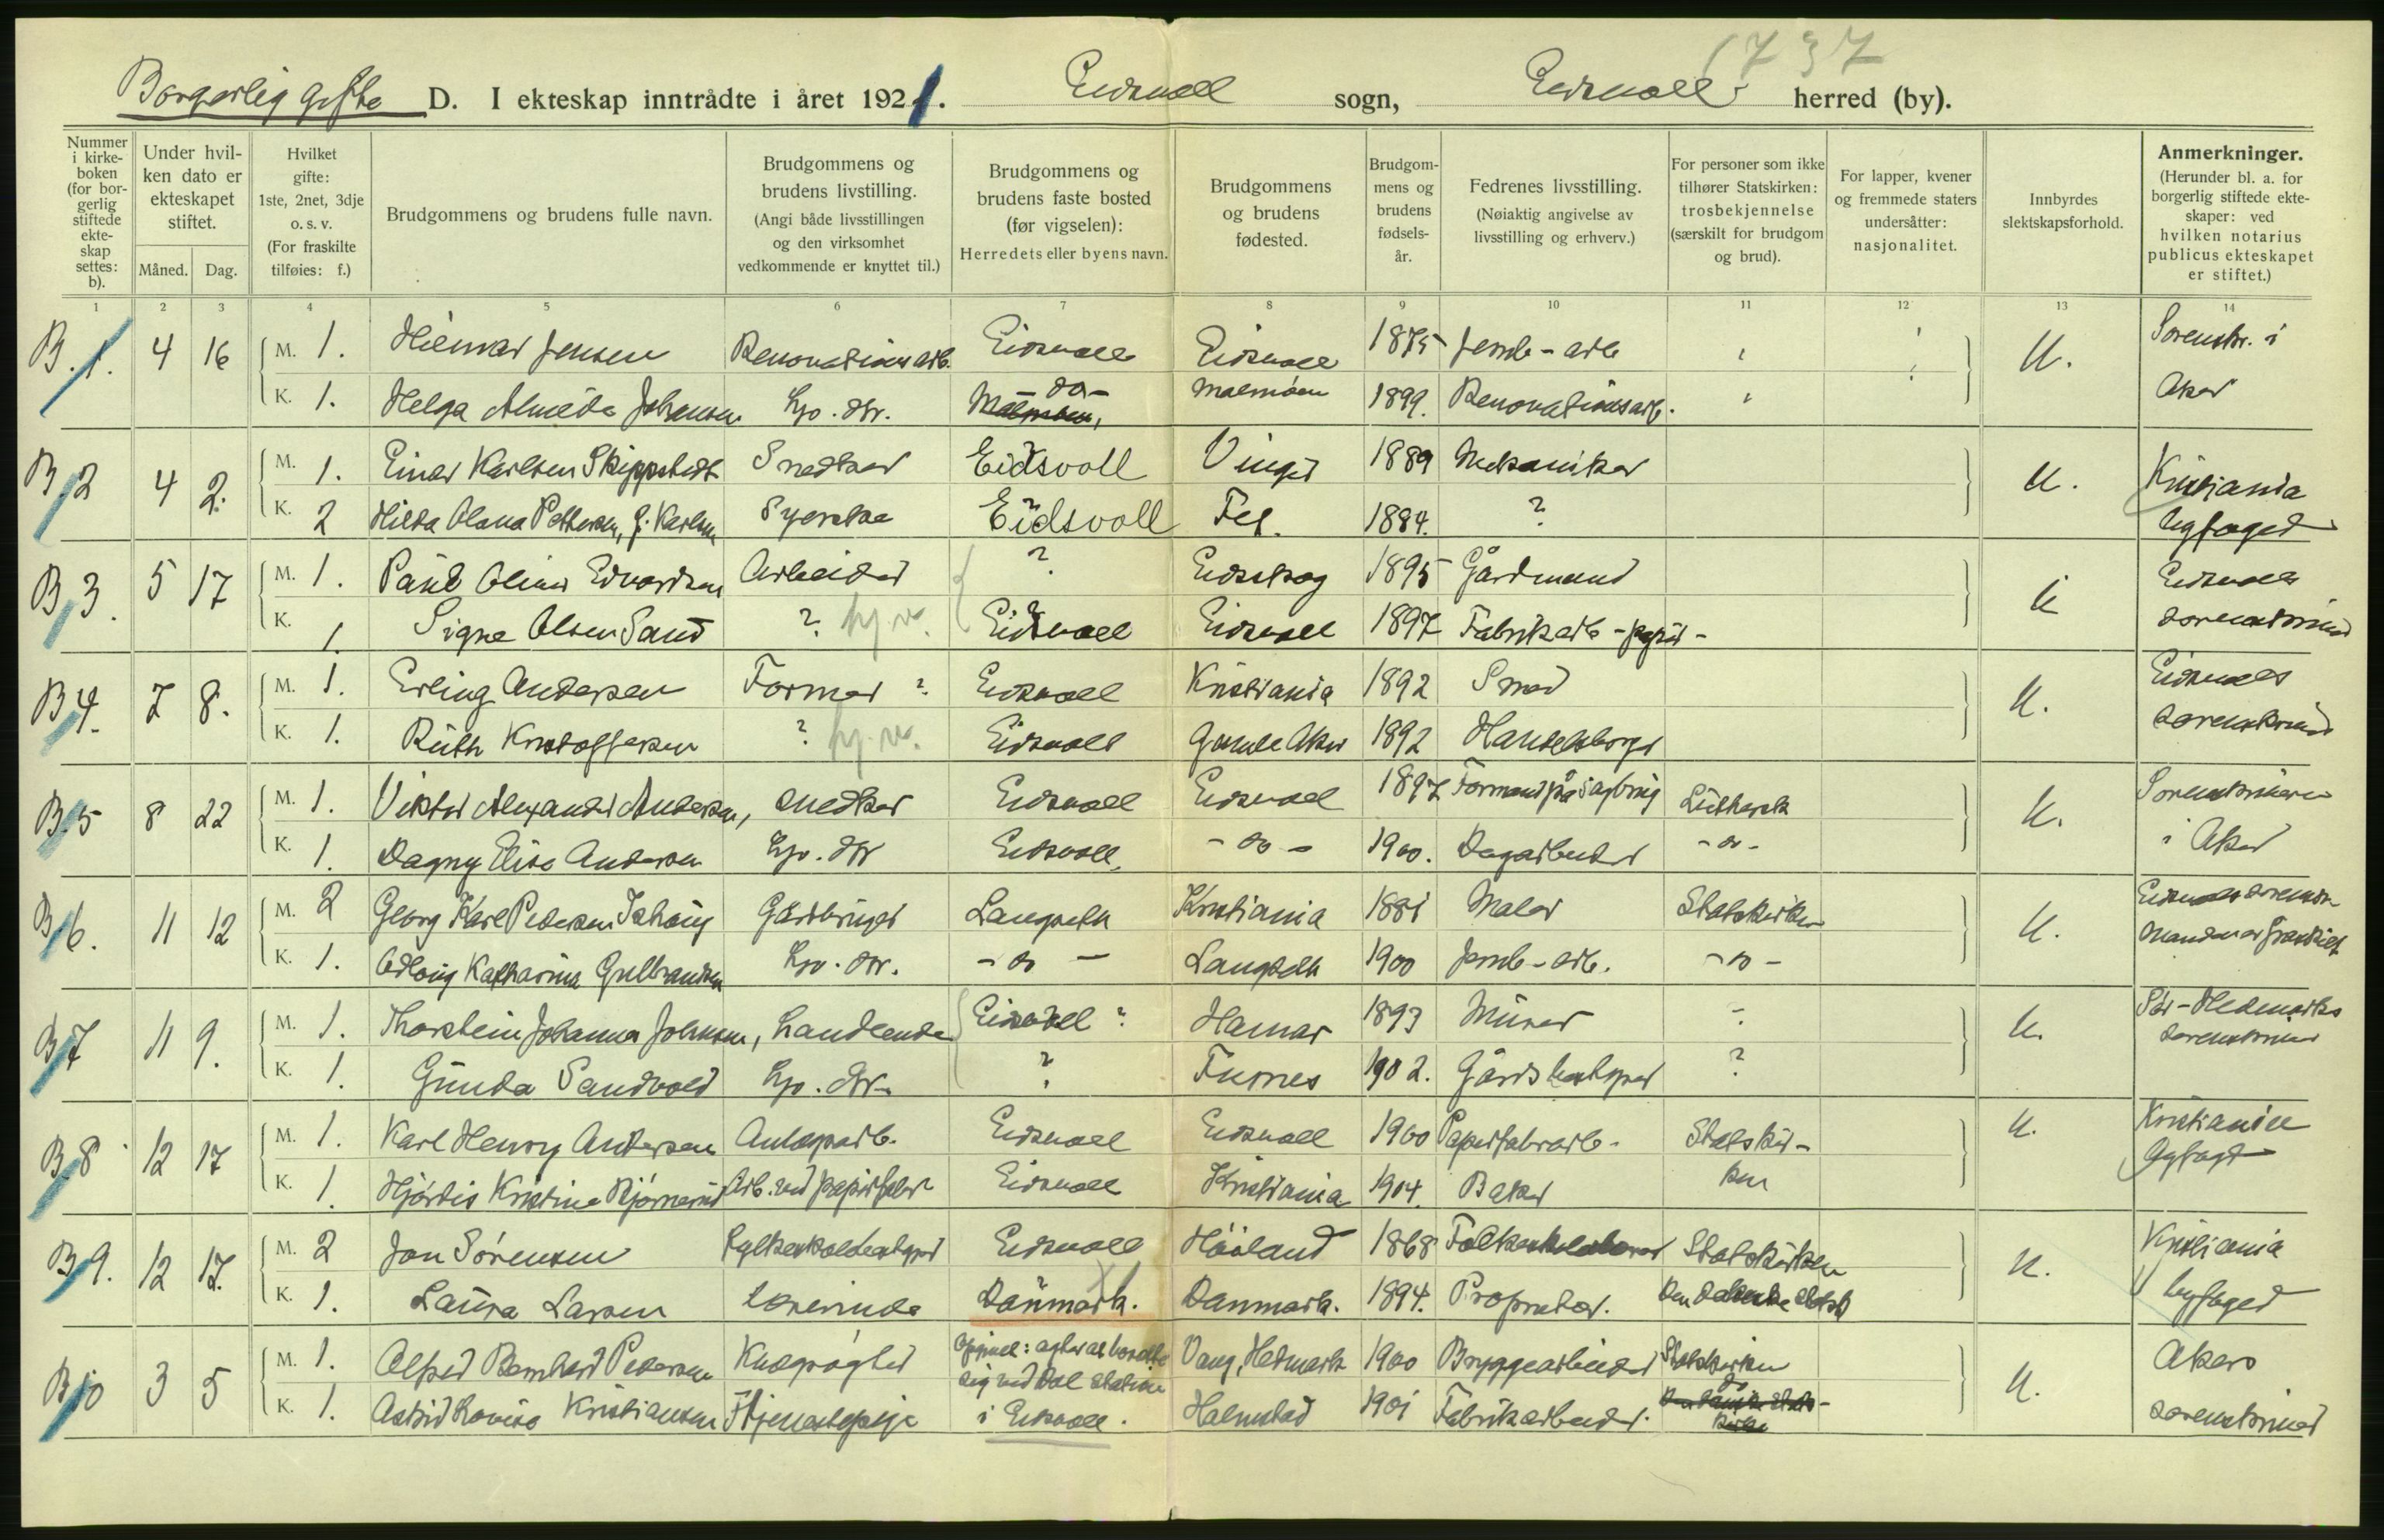 1737
Borgerlig gifte D. I ekteskap inntrådte i året 1921. Eidsvoll sogn, Eidsvoll herred (by).
Nummer i kirkeboken (for borgerlig stiftede ekteskap settes: b).
Under hvilken dato er ekteskapet stiftet.
Måned. Dag.
Hvilket gifte: 1ste, 2net, 3dje o. s. v. (For fraskilte tilføies: f.)
Brudgommens og brudens fulle navn.
Brudgommens og brudens livstilling. (Angi både livsstillingen og den virksomhet vedkommende er knyttet til.)
Brudgommens og brudens faste bosted (før vigselen): Herredets eller byens navn.
Brudgommens og brudens fødested.
Brudgommens og brudens fødselsår.
Fedrenes livsstilling. (Nøiaktig angivelse av livsstilling og erhverv.)
For personer som ikke tilhører Statskirken: trosbekjennelse (særskilt for brudgom og brud).
For lapper, kvener og fremmede staters undersåtter: nasjonalitet.
Innbyrdes slektskapsforhold.
Anmerkninger. (Herunder bl. a. for borgerlig stiftede ekteskaper: ved hvilken notarius publicus ekteskapet er stiftet.)
1 2 3 4 5 6 7 8 9 10 11 12 13 14
B.1. 4 16 M. 1. Hilmar Jensen Renovationsarb. Eidsvoll Eidsvoll 1875 Jernb-arb U. Sorenskr. i
K. 1. Helga Almeda Johansen Hjv. dtr. -do- Malmöen 1899. Renovationsarb. Aker
B.2 4 2. M. 1. Einar Karlsen Skippstedt Snedker Eidsvoll Vinger 1889 Mekaniker U. Kristiania
K. 2 Hilda Olava Pettersen, f. Karlsen Syerske Eidsvoll Fet. 1884. ? byfoged
B.3. 5 17 M. 1. Paul Oliver Edvardsen Arbeider ? Eidskog 1895 Gårdmand U Eidsvoll
K. 1. Signe Olsen Sand ? hj.v. Eidsvoll Eidsvoll 1897 Fabrikarb-papir- sorenskriver
B.4. 7 8. M. 1. Erling Andersen Former ? Eidsvoll Kristiania 1892 Smed U. Eidsvoll
K. 1. Ruth Kristoffersen ? hj.v. Eidsvoll Gamle Aker 1892 Handelsborger sorenskriver
B.5 8 22 M. 1. Viktor Alexander Andersen, snedker Eidsvoll Eidsvoll 1897 Formand på sagbrug Luthersk U. Sorenskriveren
K. 1. Dagny Elise Andersen Hjv. dtr Eidsvoll, -do- 1900. Dagarbeider -do- i Aker
B.6. 11 12 M. 2 Georg Karl Pedersen Gårdbruger Langseth Kristiania 1881 Maler Statskirken U. Eidsvoll sorenskr.
K. 1. Katharina Gulbrandsen Hjv. dtr. -do- Langseth 1900 Jernb-arb. -do- Manden er fraskilt
B.7 11 9. M. 1. Thorstein Johannes Johnsen, handlende Eidsvoll ? Hamar 1893 Murer ? U. Sør-Hedemarks
K. 1. Gunda Sandvold Hjv. dtr. ? Furnes 1902. Gårdsbestyrer ? sorenskriver
B.8 12 17 M. 1. Karl Henry Andersen Anlegsarb. Eidsvoll Eidsvoll 1900 Papirfabrarb. Statskir- U. Kristiania
K. 1. Hjørdis Kristine Bjørnerud Arb. ved papirfabr Eidsvoll Kristiania 1904. Baker ken byfogd
B.9. 12 17. M. 2 Jan Sørensen Fylkesskolebestyrer Eidsvoll Håland 1868 Folkeskolelærer Statskirken U. Kristiania
K. 1. Laura Larsen Lærerinde Danmark. Danmark. 1894. Proprietær. Den danske statsk byfoged
B.10 3 5 M. 1. Alfred Bernhard Pedersen Kudrøgter Oppgivel: agter at bosætte Vang, Hedmark 1900 Bryggearbeider Statskirken U. Akers
sig ved Dal station
K. 1. Astrid Lovise Kristiansen Tjenestepige i Eidsvoll. Halmstad 1901 Fabrikarbeider. do sorenskriver